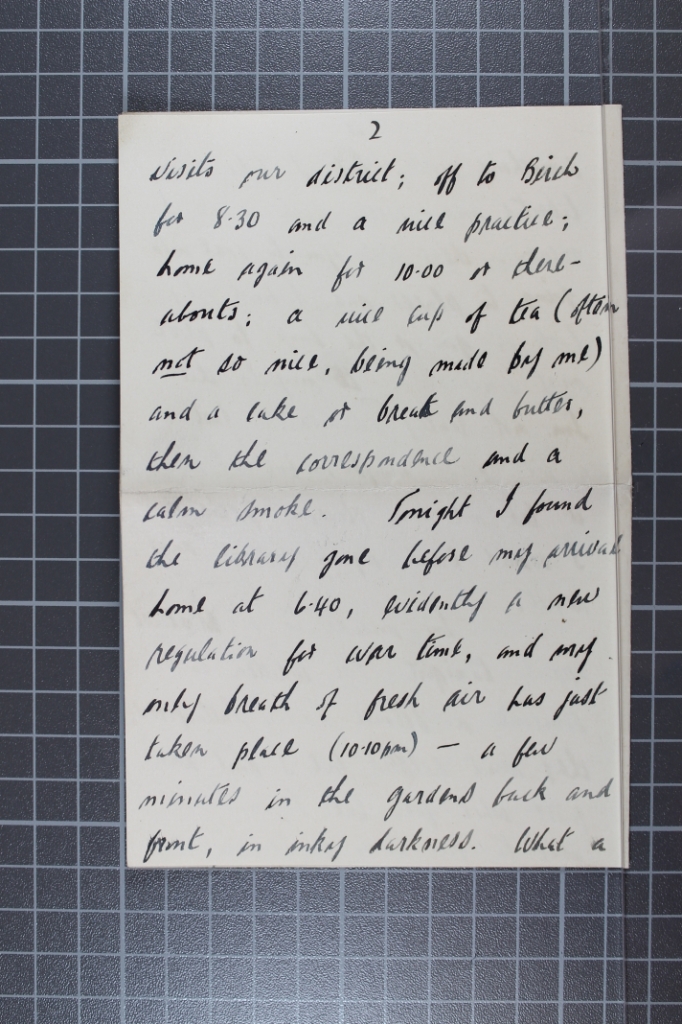 2
visits our district; off to Birch
for 8.30 and a nice practice;
home again for 10.00 or there-
abouts; a nice cup of tea (often
not so nice, being made by me)
and a cake or bread and butter,
then the correspondence and a
calm smoke. Tonight I found
the library gone before my arrival
home at 6.40, evidently a new
regulation for war time, and my
only breath of fresh air has just
taken place (10.10pm) — a few
minutes in the gardens back and
front, in inky darkness. What a